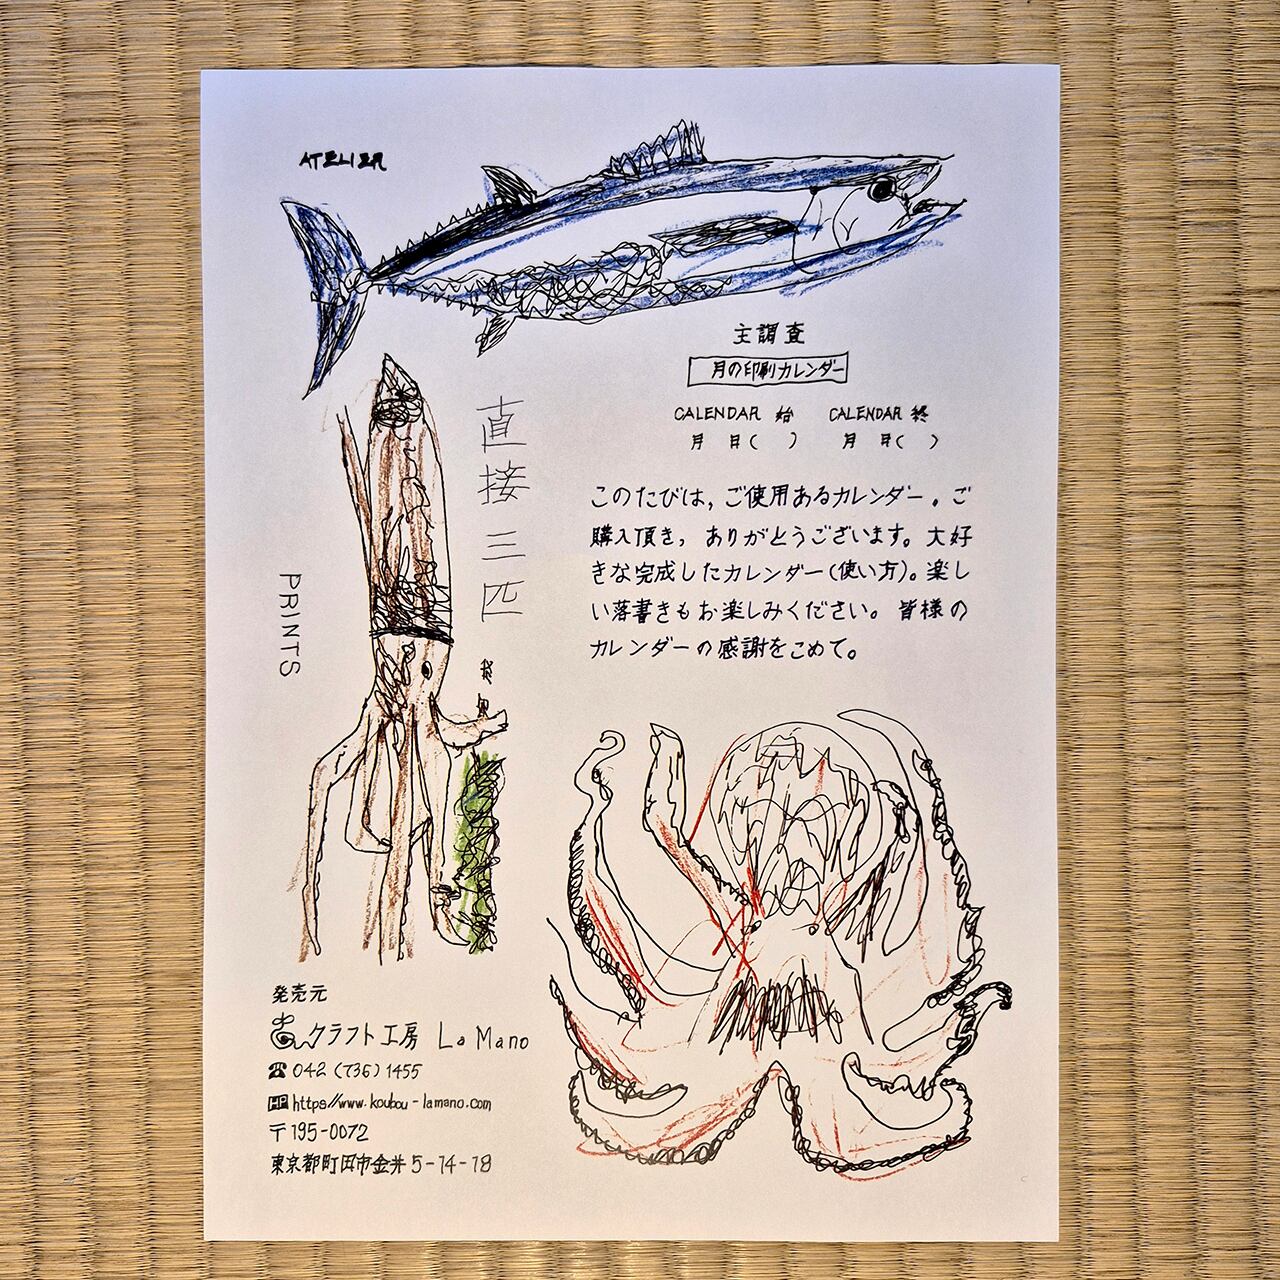 ATELIER
主調査
月の印刷カレンダー
CALENDAR 始 CALENDAR 終
月 日( ) 月 日( )
直接三匹
このたびは,ご使用あるカレンダー。ご
購入頂き,ありがとうございます。大好
きな完成したカレンダー(使い方)。楽し
い落書きもお楽しみください。皆様の
カレンダーの感謝をこめて。
PRINTS
発売元
クラフト工房 La Mano
☎ 042 (736) 1455
HP https://www.koubou-lamano.com
〒195-0072
東京都町田市金井5-14-18